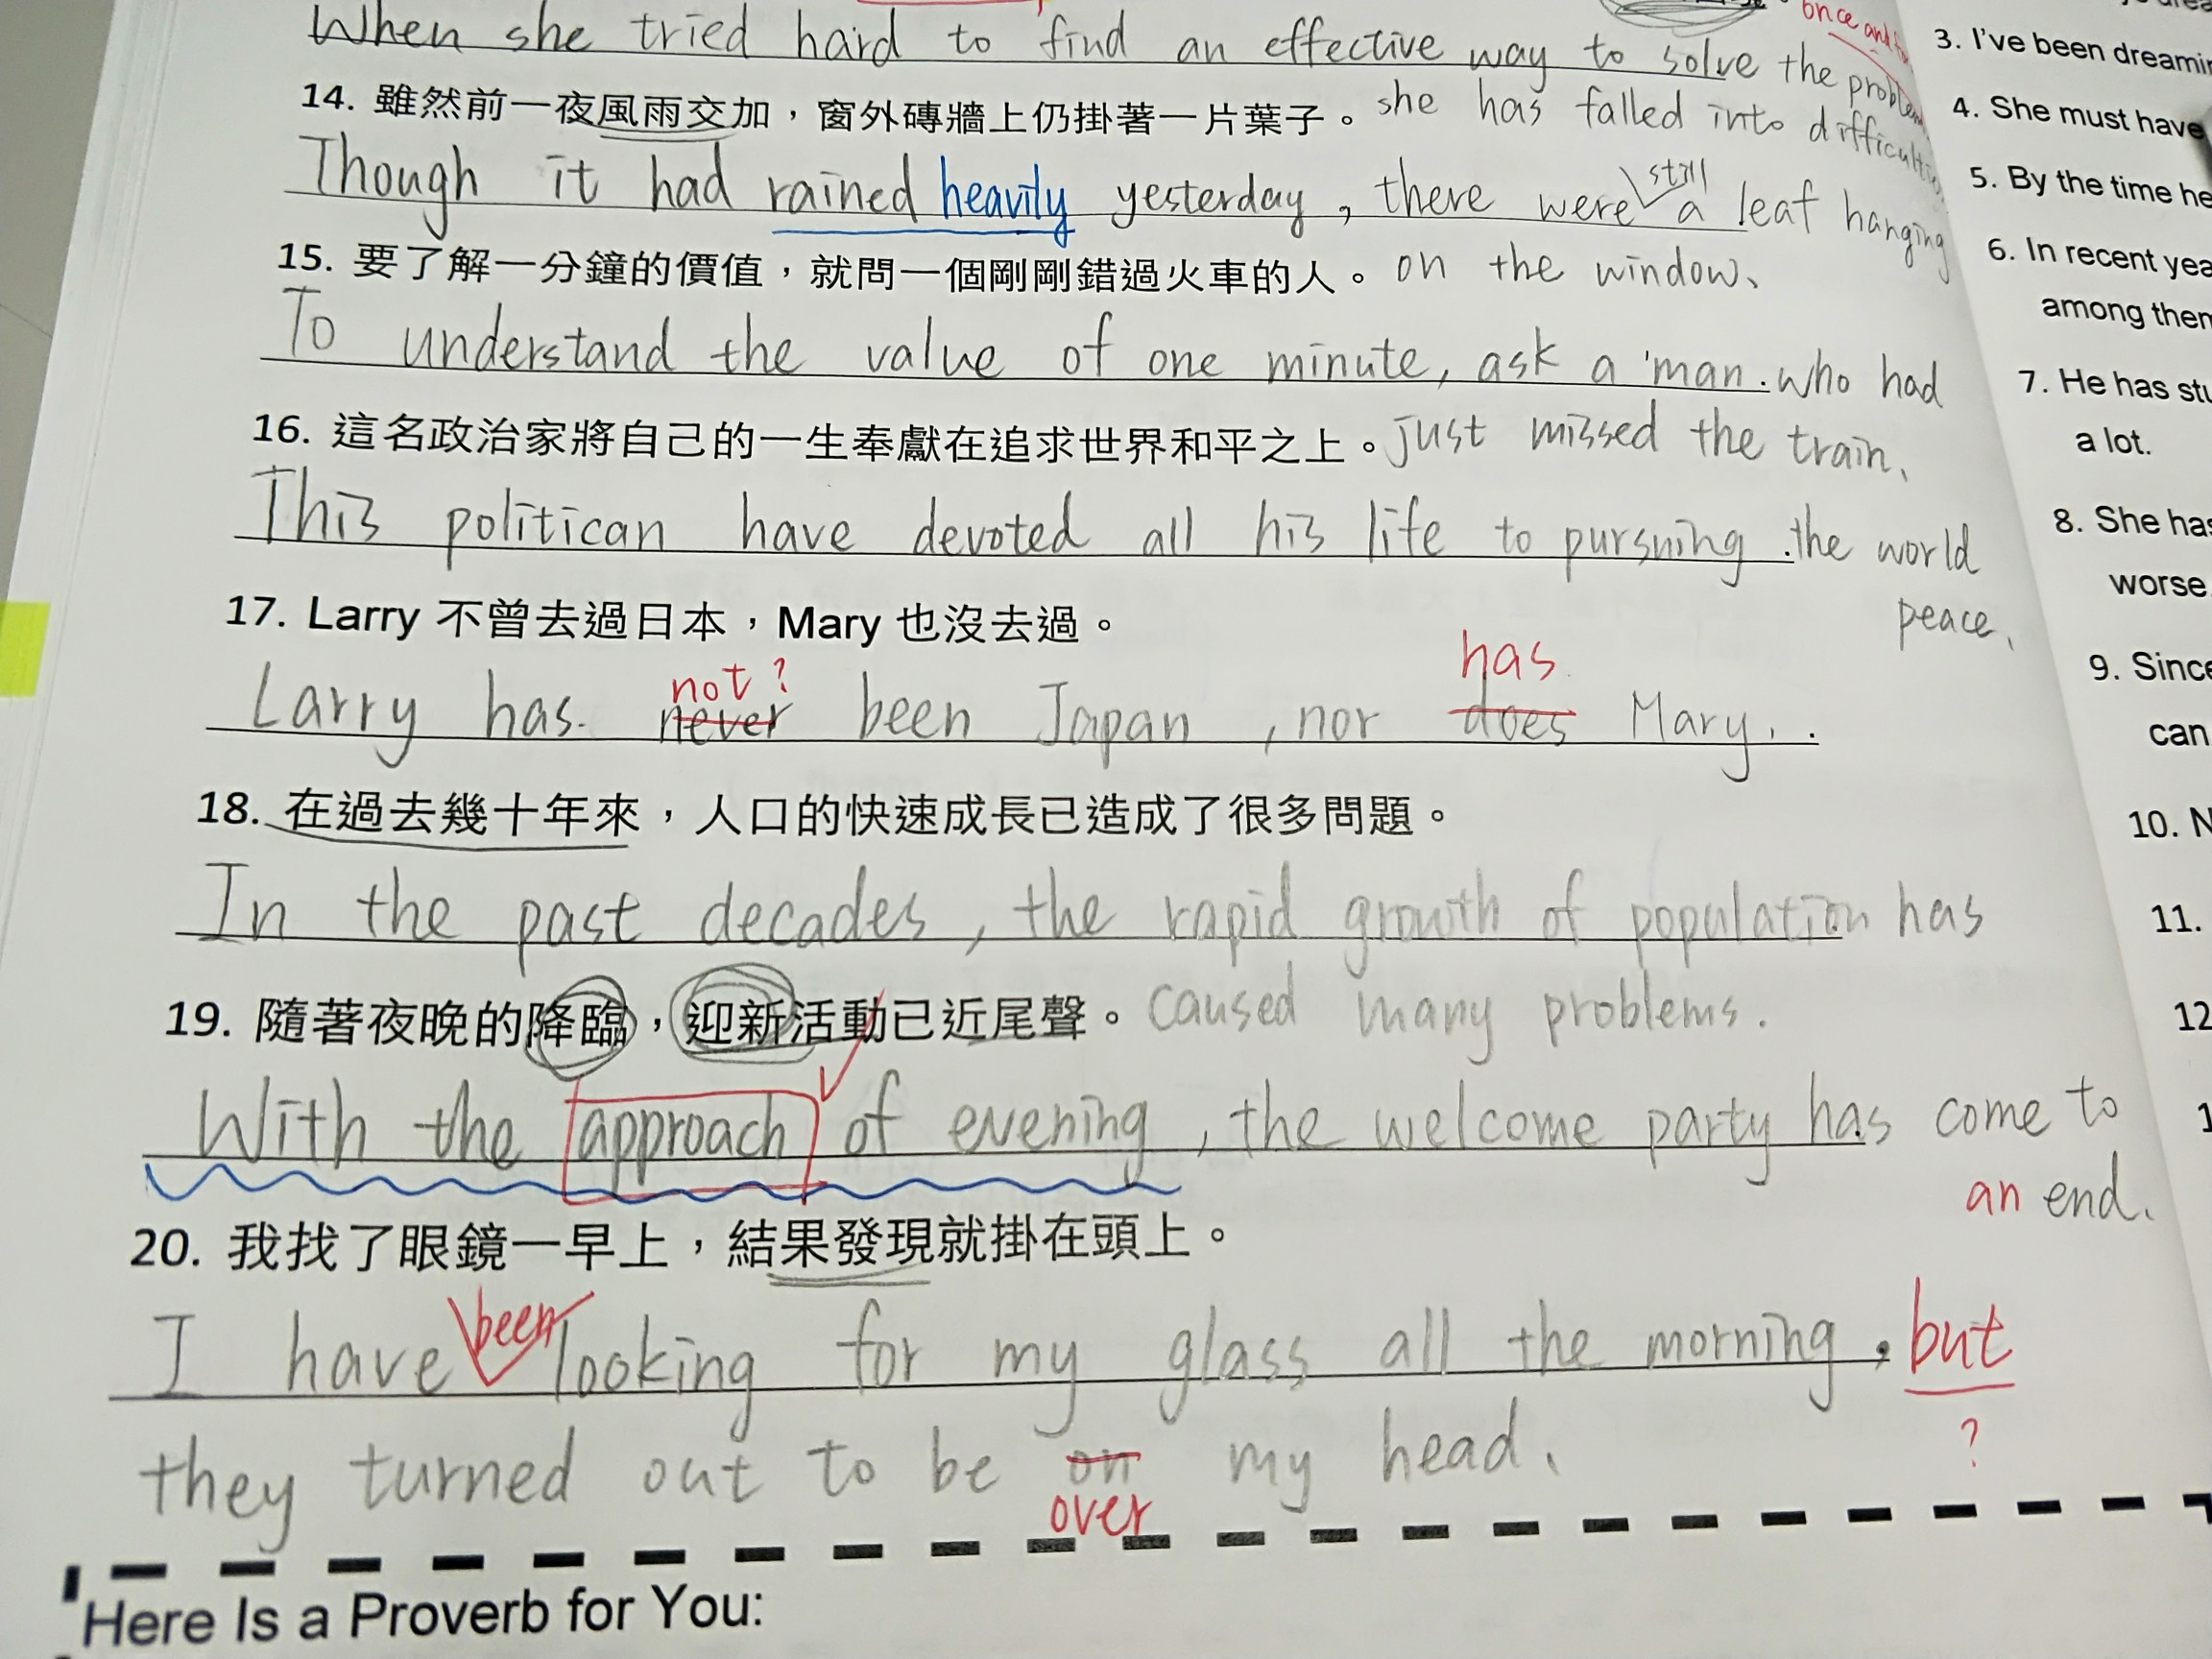 once and
When she tried hard to find an effective way to solve the problem
14. 雖然前一夜風雨交加，窗外磚牆上仍掛著一片葉子。 she has falled into
Though it had rained heavily yesterday, there were still a leaf hanging
15. 要了解一分鐘的價值，就問一個剛剛錯過火車的人。 on the window.
To understand the value of one minute, ask a man who had
16. 這名政治家將自己的一生奉獻在追求世界和平之上。 just missed the train.
This politican have devoted all his life to pursuing the world
peace.
17. Larry 不曾去過日本，Mary 也沒去過。
not? has
Larry has never been Japan, nor does Mary.
18. 在過去幾十年來，人口的快速成長已造成了很多問題。
In the past decades, the rapid growth of population has
19. 隨著夜晚的降臨，迎新活動已近尾聲。 caused many problems.
With the approach of evening, the welcome party has come to
an end.
20. 我找了眼鏡一早上，結果發現就掛在頭上。
I have been looking for my glass all the morning, but
?
they turned out to be on my head.
over
Here Is a Proverb for You:
3. I've been
4. She must have
5. By the time he
6. In recent
among
7. He has
a lot.
8. She has
worse
9. Since
can
10.
11.
12